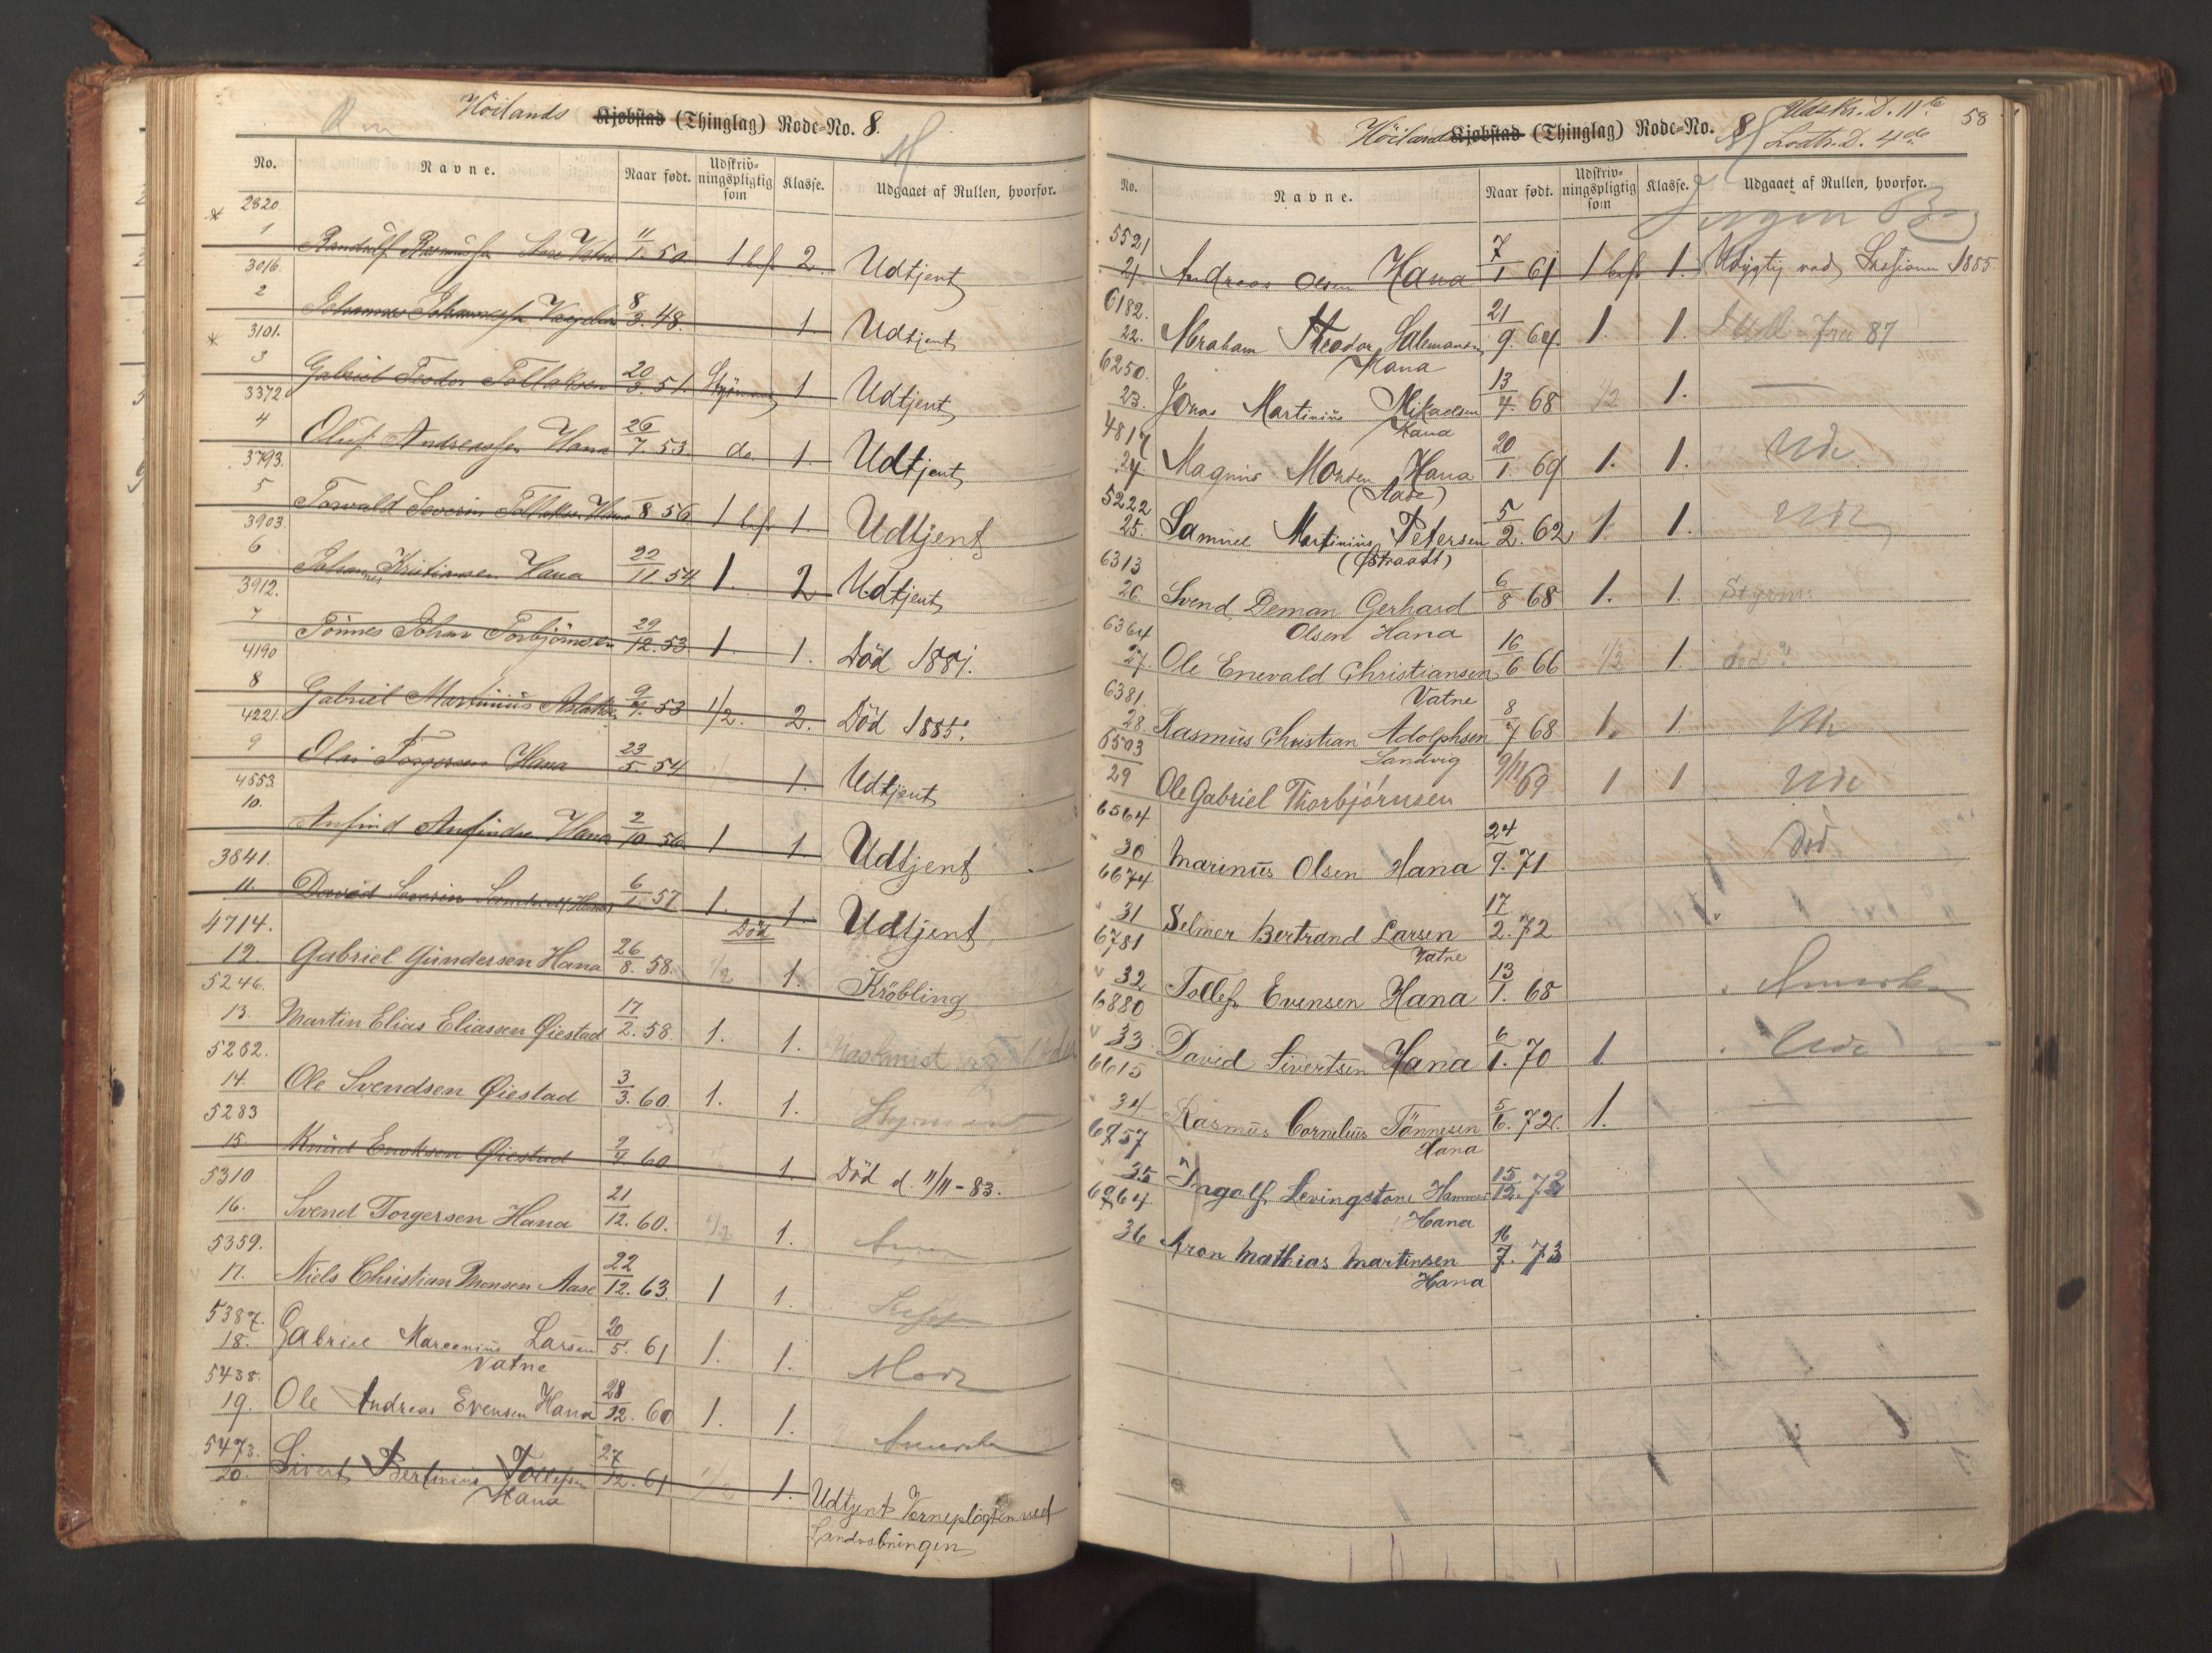 Höilands Kjøbstad (Thinglag) Rode=No. 8.
No. Navne. Naar født. Udskriv=ningspligtig som Klasse. Udgaaet af Rullen, hvorfor.
2820
1 11/1 50 1 bef. 2. Udtjent
3016.
2 Johannes Johannessen 8/3. 48. 1. Udtjent
3101.
3 Gabriel Teodor Tollaksen 20/3. 51. Styrmand 1 Udtjent
3372
4 Oluf Andreassen Hana 26/7. 53. do. 1. Udtjent
3793.
5 Torvald Severin Tollaksen Hana 8 56. 1 bef. 1 Udtjent
3903.
6 Johannes Kristiansen Hana 22/11 54 1. 2 Udtjent
3912.
7 Tönnes Johan Torbjörnsen 29/12. 53. 1. 1. Död 1881.
4190
8 Gabriel Martinius Aslaksen 9/4. 53 1/2. 2. Död 1885.
4221.
9 Olai Torgersen Hana 23/5. 54 1. Udtjent
4553.
10. Anfind Anfindsen Hana 2/10. 56. 1 1 Udtjent
3841.
11. David Severin 6/1. 57 1. 1. Udtjent
4714. Död
12. Gabriel Gundersen Hana 26/8. 58. 1/2 1. Kröbling
5246.
13. Martin Elias Eliassen Øiestad 17/2. 58. 1. 1. Maskinist
5262.
14. Ole Svendsen Øiestad 3/3. 60. 1. 1. Styrmand
5283
15 Knud Enoksen Øiestad 9/4 60 1. Död d. 11/11 - 83.
5310
16. Svend Torgersen Hana 21/12. 60. 1/2 1.
5359.
17. Niels Christian Monsen Aase 22/12. 63. 1 1.
5387.
18. Gabriel Marcenius Larsen 20/5. 61 1. 1.
Vatne
5438.
19. Ole Andreas Evensen Hana 28/12. 60 1. 1. Amerika
5473.
20. Sivert Bertinius Tollefsen 27/12. 61 1/2 1. Udtjent Værnepligten ved
Hana Landvæbningen
Udskr. D. 11te 58
Höilands Kjøbstad (Thinglag) Rode=No. 8 Lodts. D. 4de
No. Navne. Naar født. Udskriv=ningspligtig som Klasse. Udgaaet af Rullen, hvorfor.
5521
21. Andreas Olsen Hana 7/1 61 1 bef. 1. Udygtig ved Sessionen 1885.
6182.
22. Abraham Theodor Salemonsen 21/9. 64. 1. 1. 87
Hana
6250.
23. Jonas Martinius Mikaelsen 13/4. 68 1/2 1. —
Hana
4817
24 Magnus Monsen Hana 20/1. 69 1. 1. Ude
(Aase)
5222
25. Samuel Martinius Petersen 5/2. 62 1. 1. Ude
(Østraadt)
6313
26. Svend Deman Gerhard 6/8 68 1. 1. Styrm.
Olsen Hana
6364
27. Ole Enevald Christiansen 16/6 66 1/2 1. død?
Vatne
6381.
28. Rasmus Christian Adolphsen 8/7 68 1. 1. Ude
Sandvig
6503
29 Ole Gabriel Thorbjörnsen 9/11 69 1 1 Ude
6564
30 Marinus Olsen Hana 24/9. 71. Död
6674
31 Selmer Bertrand Larsen 17/2. 72
Vatne
6781
32 Tollef Evensen Hana 13/1. 68 Amerika
6880
33 David Sivertsen Hana 6/1. 70 1. Ude
6615
34 Rasmus Cornelius Tönnesen 5/6. 72. 1. —
Hana
6957
35 Ingolf Levingstone Hammer 15/12. 73
Hana
6964
36 Aron Mathias Martinsen 16/7. 73
Hana